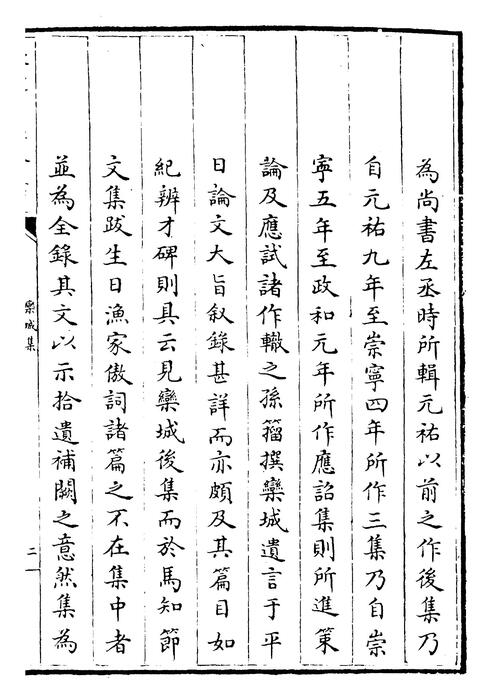 為尚書左丞時所輯元祐以前之作後集乃
自元祐九年至崇寧四年所作三集乃自崇
寧五年至政和元年所作應詔集則所進策
論及應試諸作轍之孫籀撰欒城遺言于平
日論文大旨叙録甚詳而亦頗及其篇目如
紀辨才碑則具云見欒城後集而於馬知節
文集跋生日漁家傲詞諸篇之不在集中者
並為全録其文以示拾遺補闕之意然集為
欒城集
二